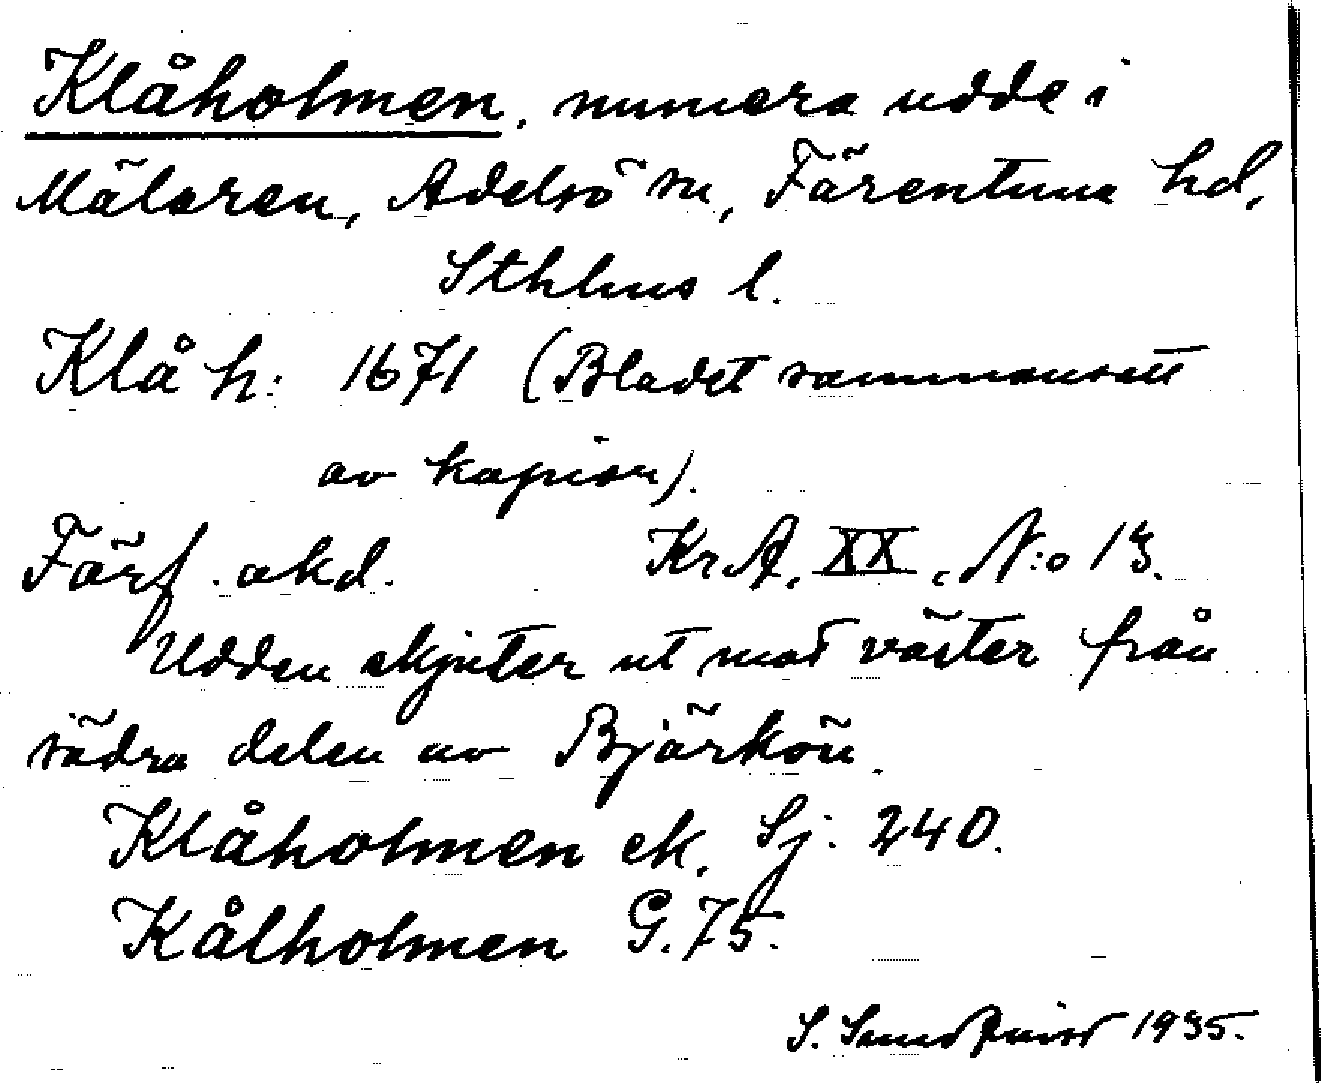 Klåholmen, numera udde i
Mälaren, Adelsö sn, Färentuna hd,
Sthlms l.
Klå h: 1671 (Bladet sammansatt
av kopior).
Förf. okd. KrA. XX, N:o 13.
Udden skjuter ut mot väster från
södra delen av Björkön.
Klåholmen ek. Sj. 240.
Kålholmen G. 75.
S. Sundquist 1935.